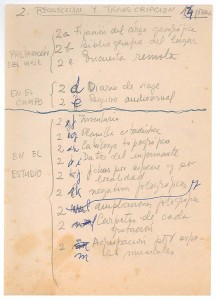 2. RECOLECCION Y TRANSCRIPCION
PREPARACION DEL VIAJE
2 a Fijación del área geográfica
2 b Bibliografía del lugar
2 c Encuesta remota
EN EL CAMPO
2 d Diario de viaje
2 e Registro audiovisual
EN EL ESTUDIO
2 f Inventario
2 g Planilla
2 h Catálogo topográfico
2 i Datos del informante
2 j fichas por especie y por localidad
2 k negativos fotográficos
2 l ampliaciones fotográficas
2 Carpetas de cada
2 m musicales